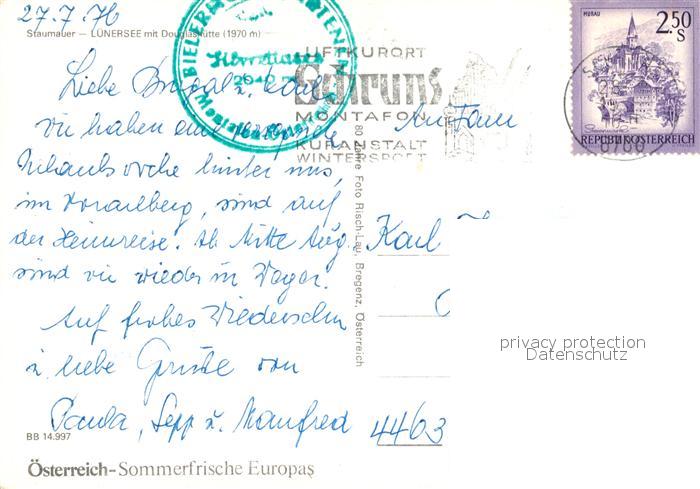 27.7.76
Staumauer — LÜNERSEE mit Douglashütte (1970 m)
Liebe
wir haben eine
Urlaubswoche hinter uns,
im Vorarlberg, sind auf
der Heimreise. Ab Mitte Aug.
sind wir wieder in Weyer.
Auf frohes Wiedersehn
u. liebe Grüße von
Paula, Sepp u. Manfred
BB 14.997
Österreich-Sommerfrische Europas
2040 m
LUFTKURORT
Schruns
MONTAFON
KURANSTALT
WINTERSPORT
80 Jahre Foto Risch-Lau, Bregenz, Österreich
MURAU
2.50
S
REPUBLIK ÖSTERREICH
6780
An Fam
Karl
4463
privacy protection
Datenschutz